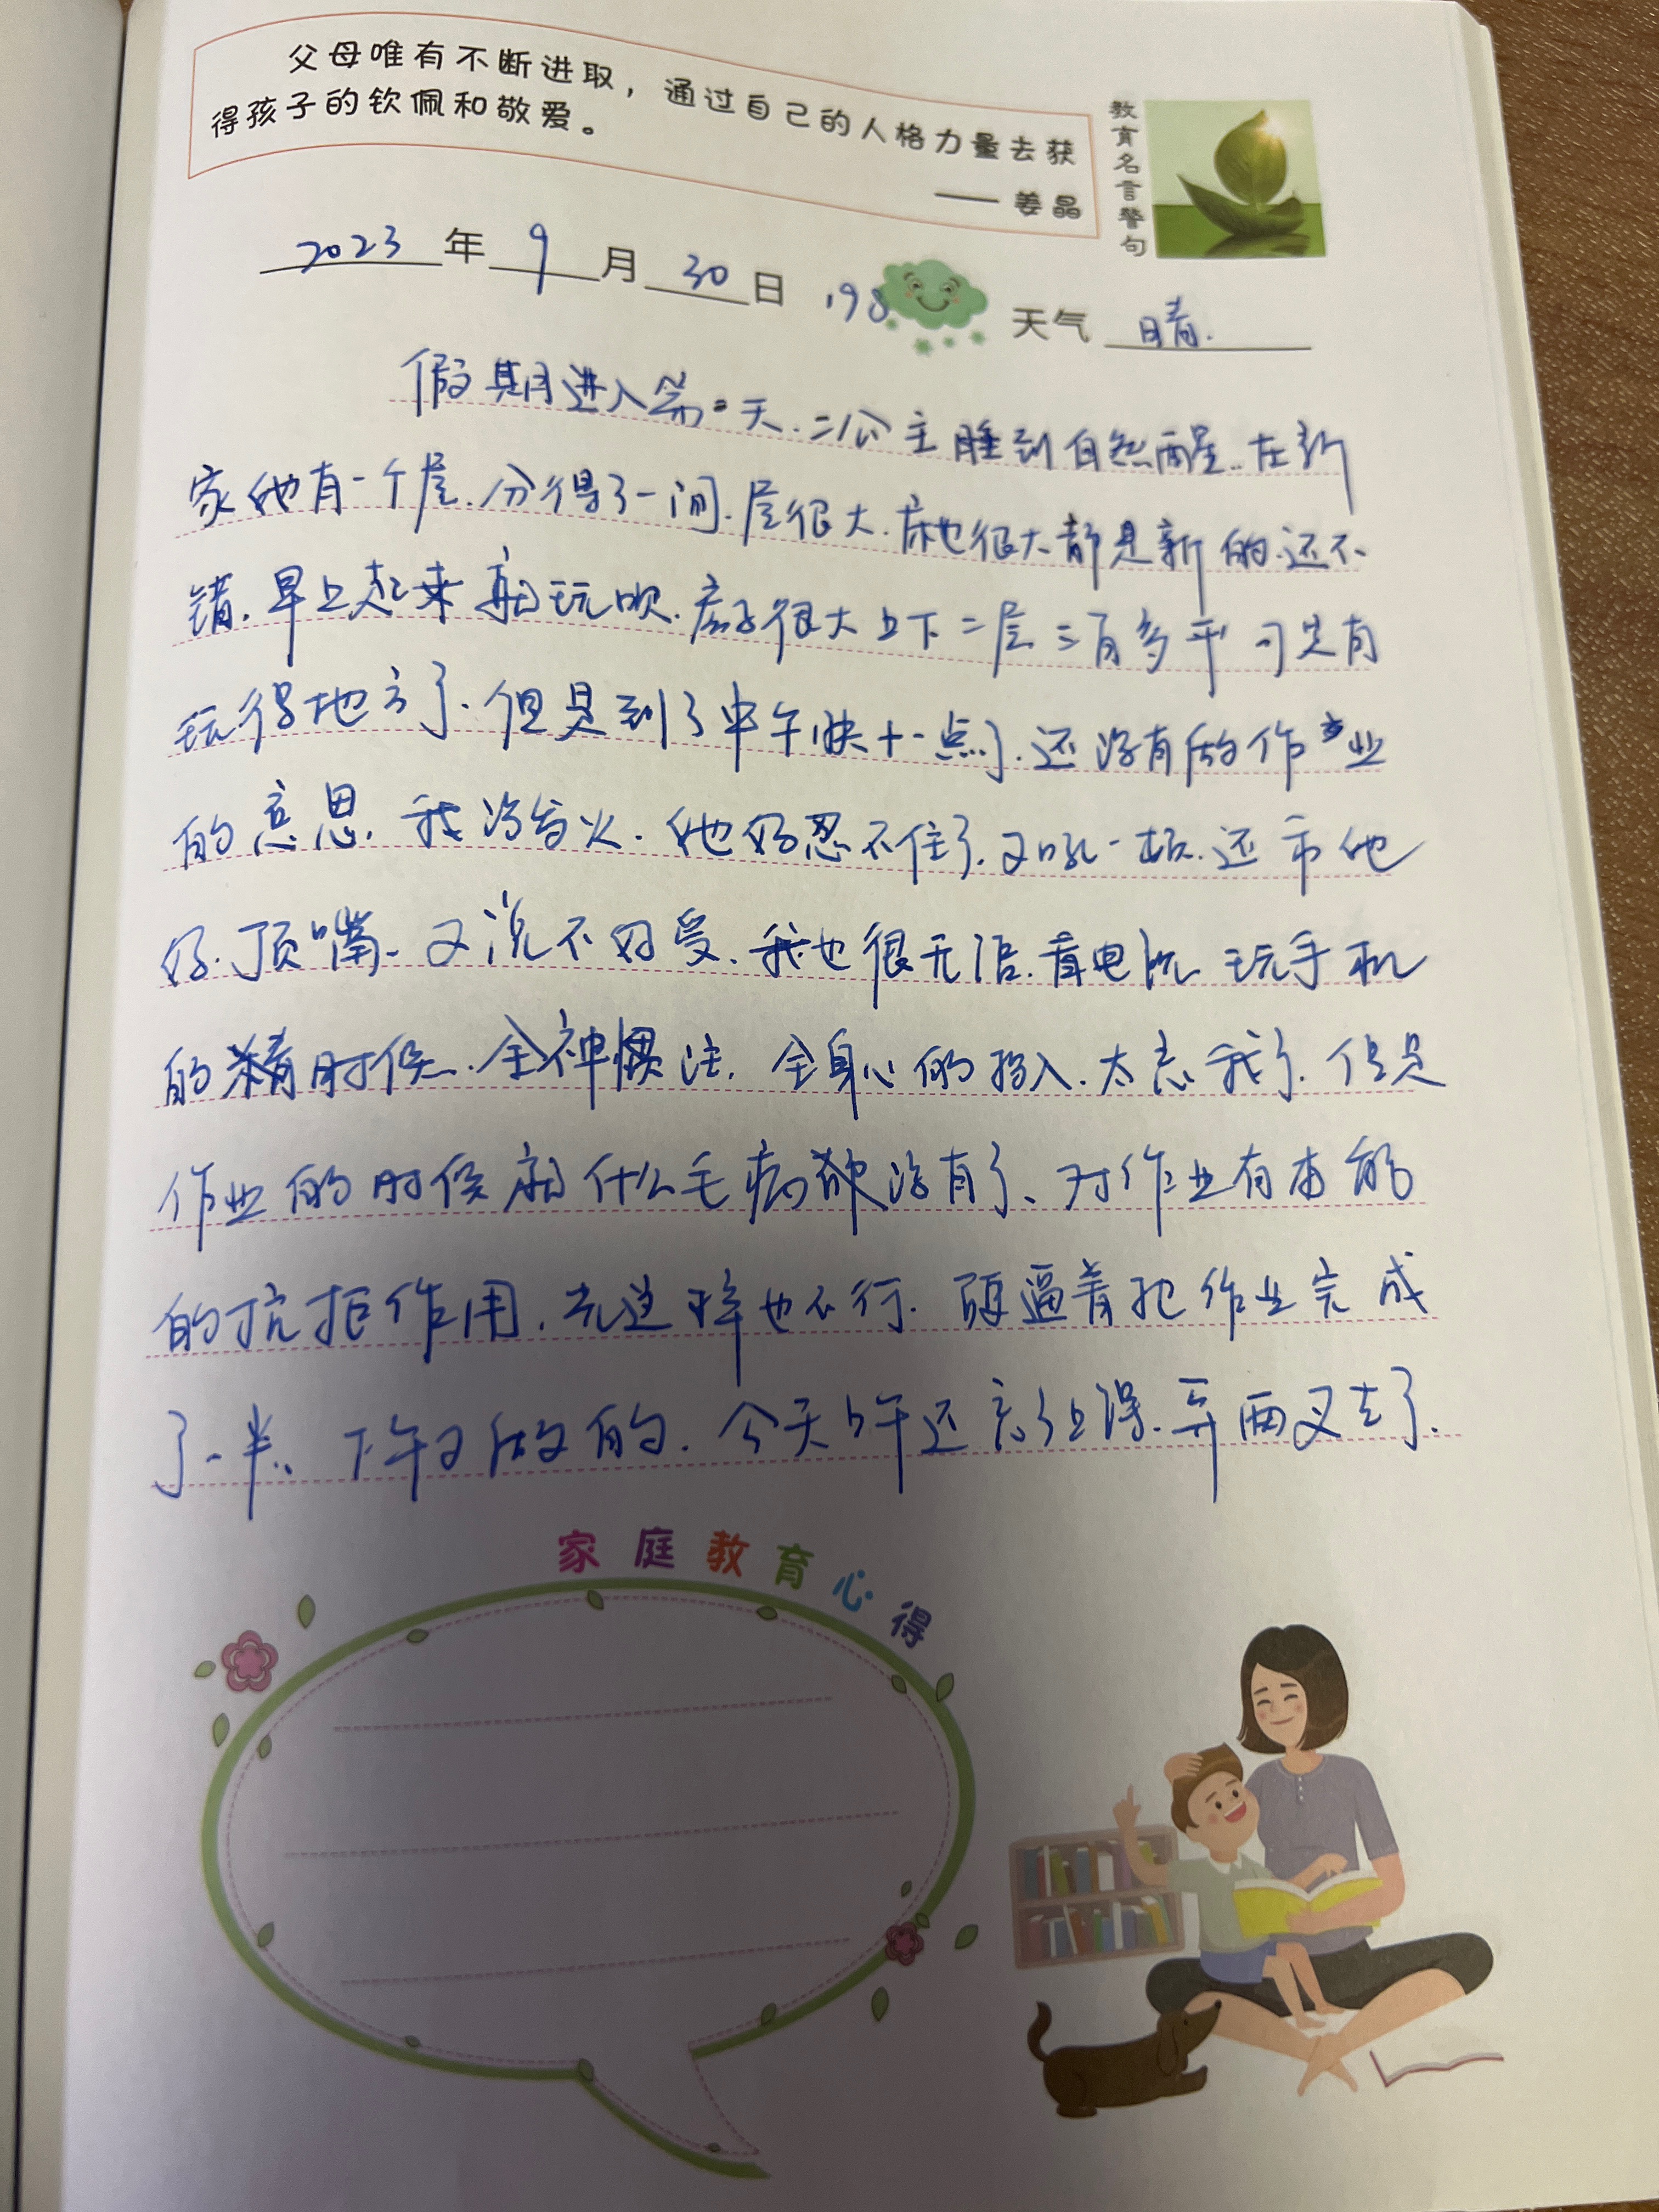 父母唯有不断进取，通过自己的人格力量去获
得孩子的钦佩和敬爱。
—— 姜晶
教育名言警句
2023 年 9 月 30 日 198 天气 晴.
假期进入第二天.二公主睡到自然醒.在新
家她有一个屋.分得了一间.屋很大.床也很大都是新的.还不
错.早上起来就玩呗.房子很大上下二层三百多平可是有
玩得地方了.但是到了中午快十一点了.还没有做作业
的意思.我没发火.她妈忍不住了.又吼一顿.还和她
妈.顶嘴.又说不好受.我也很无语.看电视玩手机
的时候.全神惯注.全身心的投入.太忘我了.但是
作业的时候就什么毛病都没有了、对作业有本能
的抗拒作用.光这样也不行.硬逼着把作业完成
了一半.下午又做的.今天上午还忘了上课.弄两又去了.
家庭教育心得